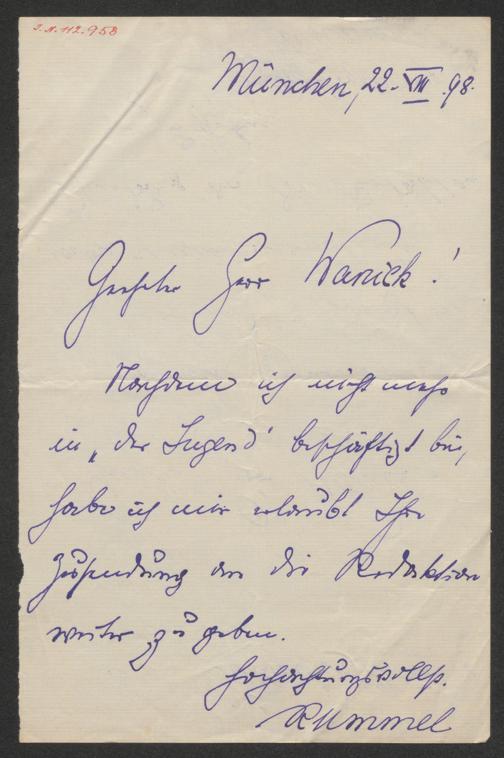 J.N. 112.958
München, 22. VIII. 98.
Geehrter Herr Wanieck!
Nachdem ich nicht mehr
in „der Jugend" beschäftigt bin,
habe ich mir erlaubt Ihre
Zusendung an die Redaktion
weiter zu geben.
Hochachtungsvollst.
Rummel